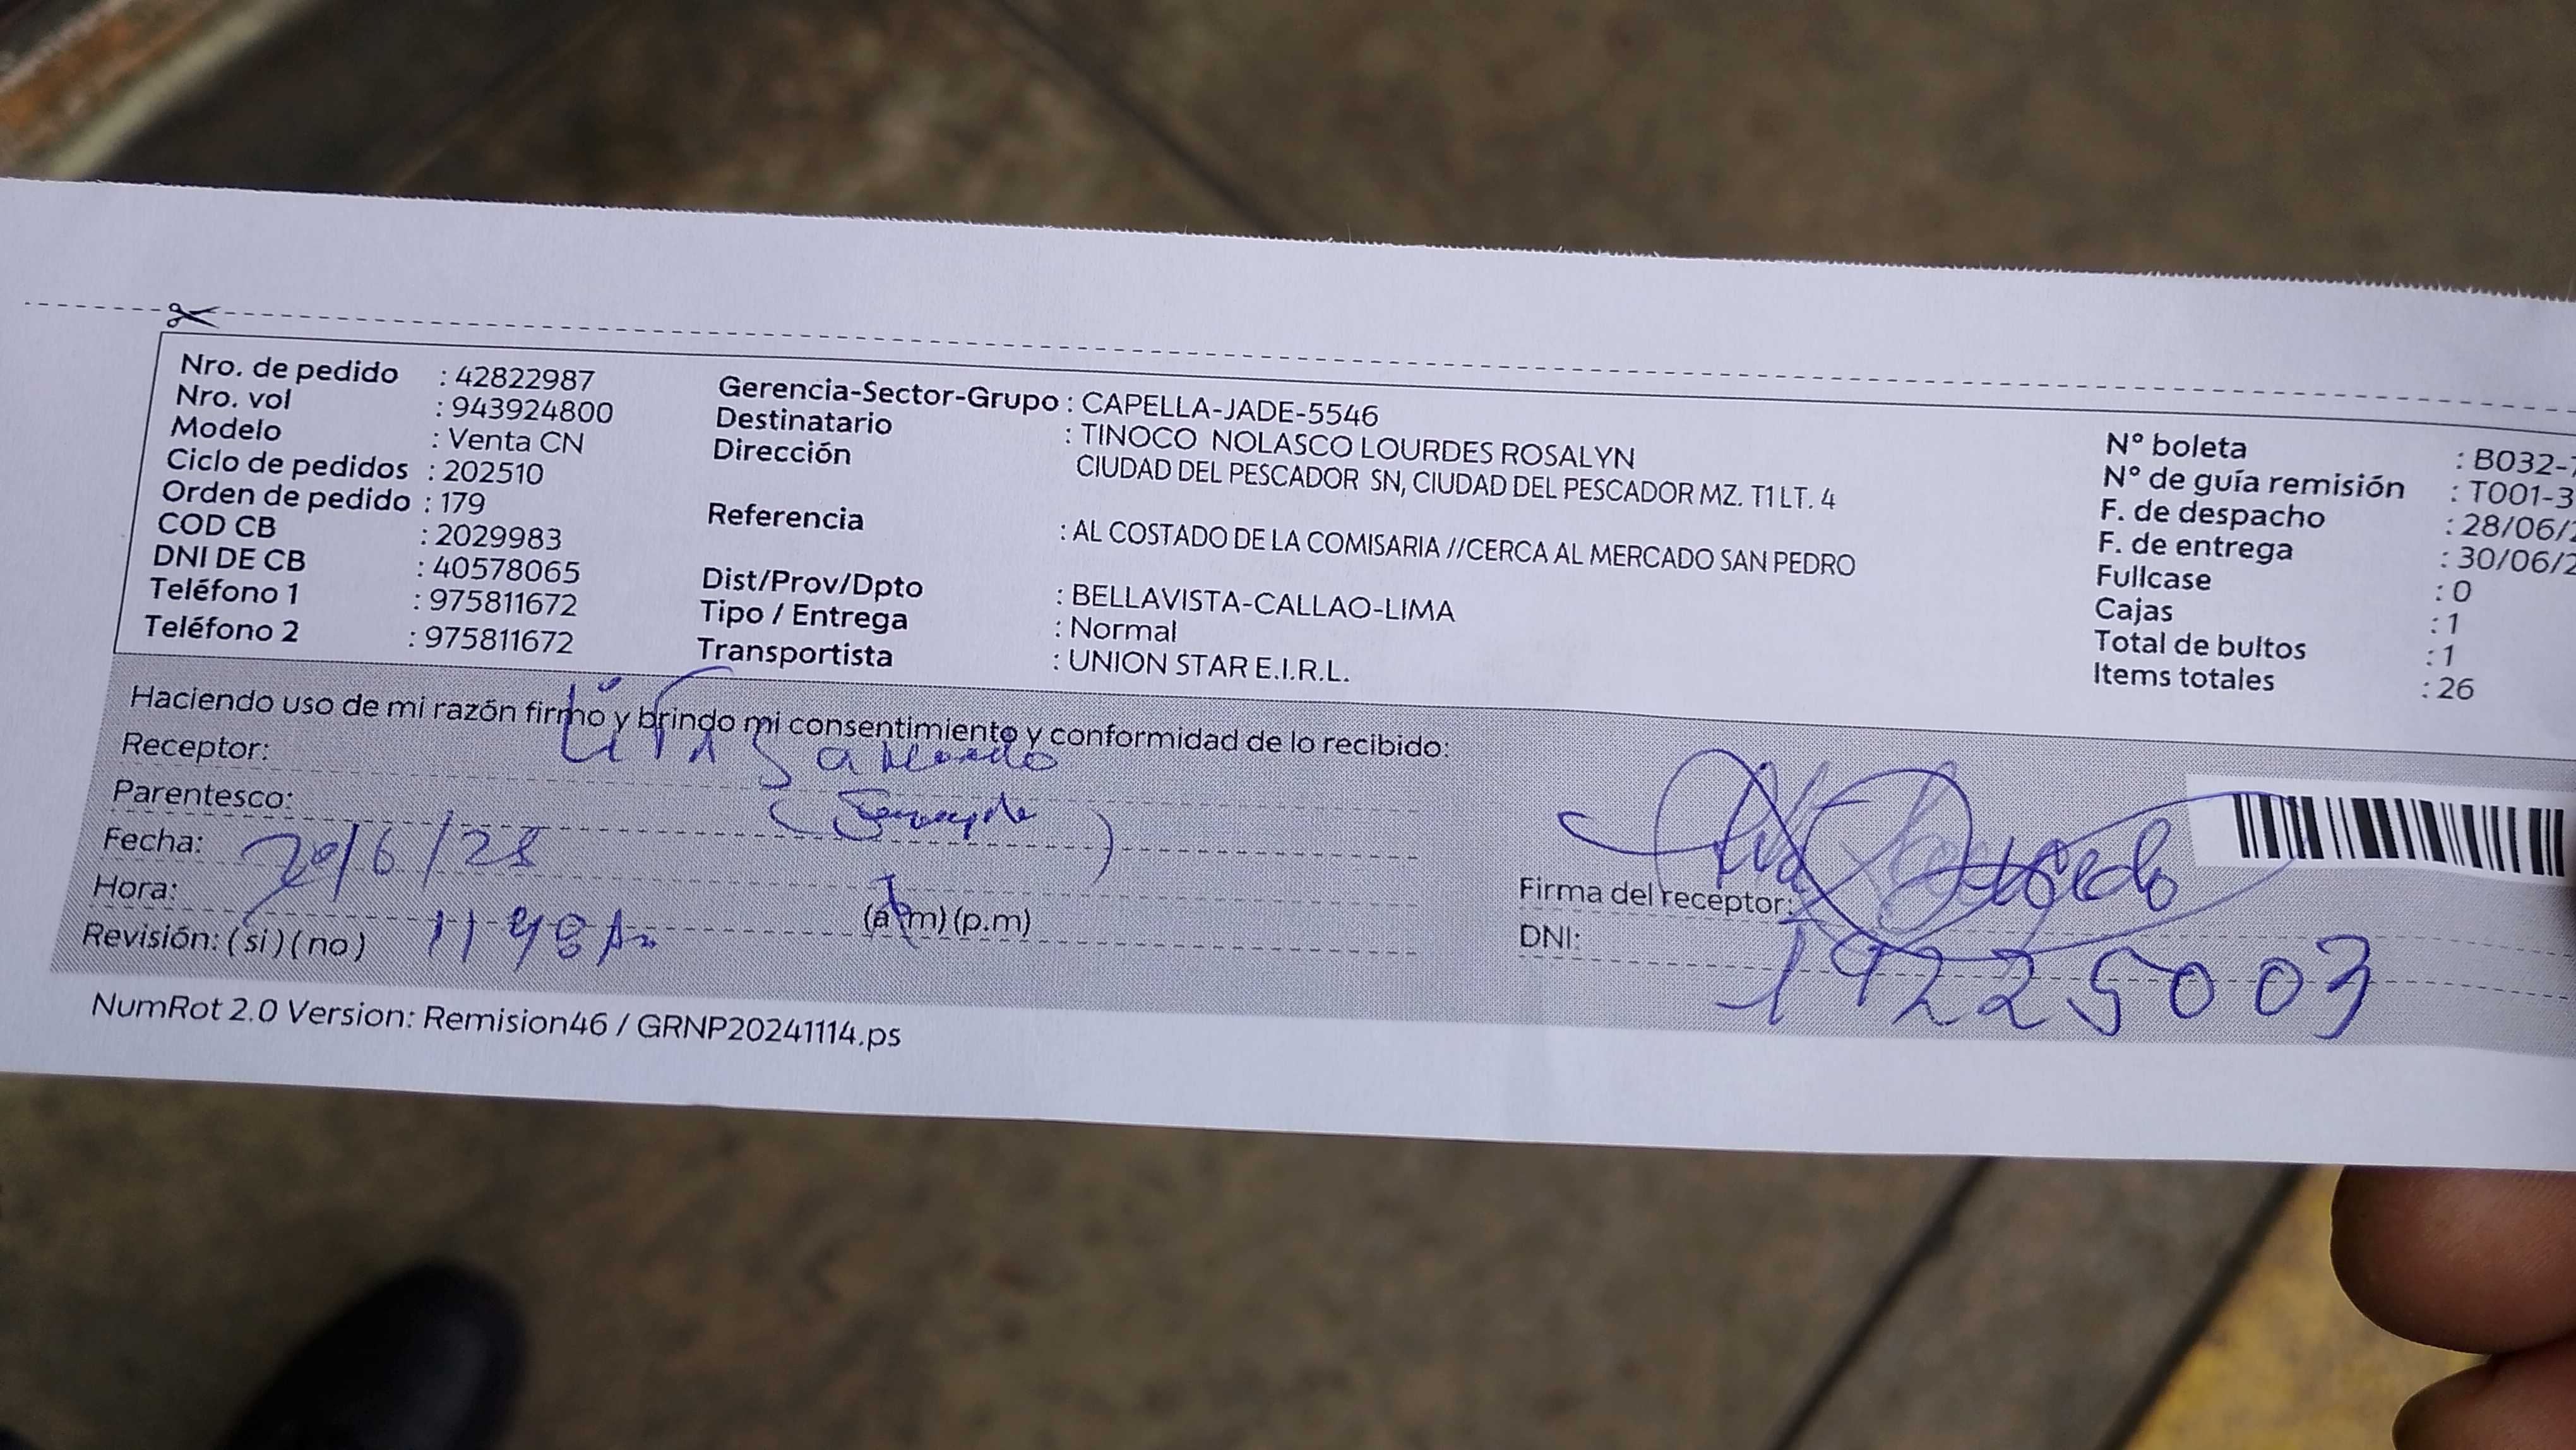 Nro. de pedido : 42822987
Nro. vol : 943924800
Modelo : Venta CN
Ciclo de pedidos : 202510
Orden de pedido : 179
COD CB : 2029983
DNI DE CB : 40578065
Teléfono 1 : 975811672
Teléfono 2 : 975811672
Gerencia-Sector-Grupo : CAPELLA-JADE-5546
Destinatario : TINOCO NOLASCO LOURDES ROSALYN
Dirección CIUDAD DEL PESCADOR SN, CIUDAD DEL PESCADOR MZ. T1 LT. 4
Referencia : AL COSTADO DE LA COMISARIA //CERCA AL MERCADO SAN PEDRO
Dist/Prov/Dpto : BELLAVISTA-CALLAO-LIMA
Tipo / Entrega : Normal
Transportista : UNION STAR E.I.R.L.
N° boleta : B032-
N° de guía remisión : T001-3
F. de despacho : 28/06/
F. de entrega : 30/06/2
Fullcase : 0
Cajas : 1
Total de bultos : 1
Items totales : 26
Haciendo uso de mi razón firmo y brindo mi consentimiento y conformidad de lo recibido:
Receptor:
Parentesco:
Fecha:
Hora: (a.m) (p.m)
Revisión: (si) (no) 11 48 Am
Firma del receptor:
DNI: 19225003
NumRot 2.0 Version: Remision46 / GRNP20241114.ps